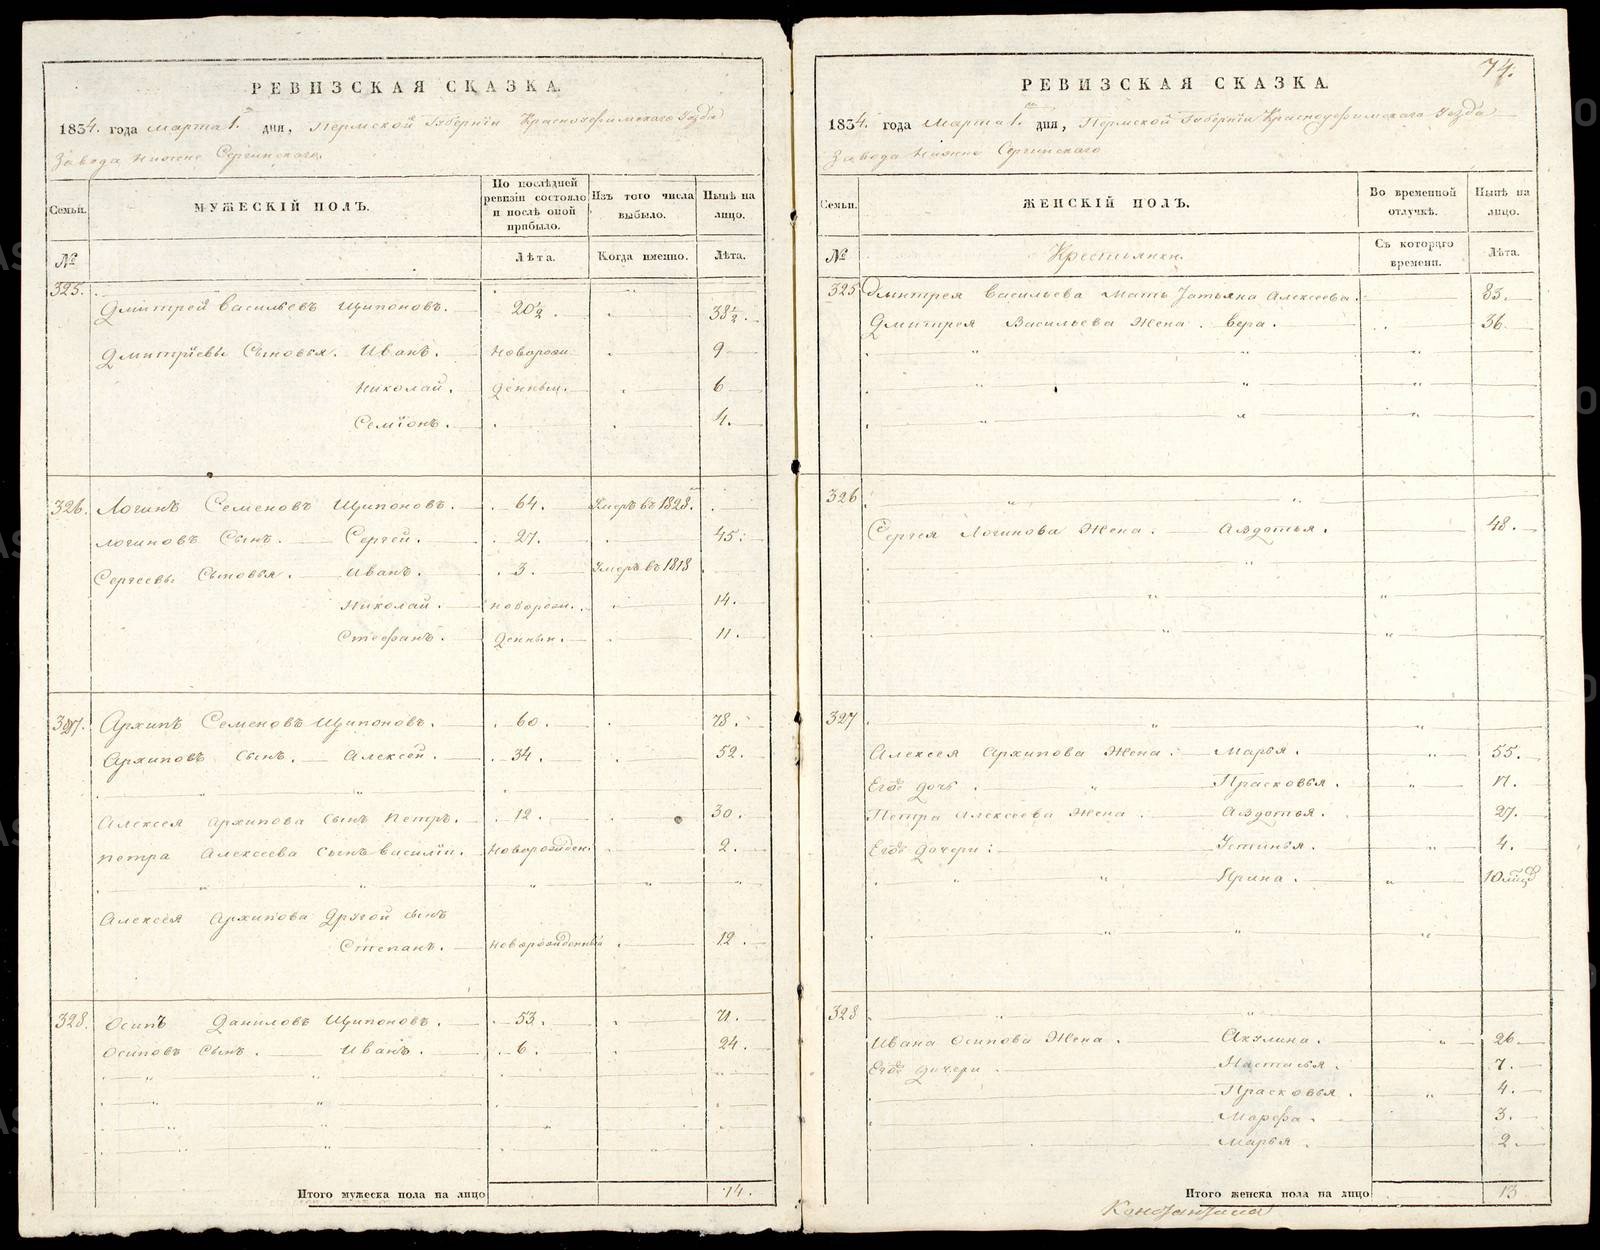 РЕВИЗСКАЯ СКАЗКА.
1834. года Марта 1. дня, Пермской Губернiи Красноуфимскаго Уезда
Завода Нижне Сергинскаго.
Семьи. МУЖЕСКІЙ ПОЛЪ. По послѣдней ревизіи состояло и послѣ оной прибыло. Изъ того числа выбыло. Нынѣ на лицо.
№ Лѣта. Когда именно. Лѣта.
325.
Дмитрей Васильевъ Щипоновъ. 20½. 38½.
Дмитрiевы Сыновья. Иванъ. Новорож 9
Николай. денныи. 6
Семiонъ. 4.
326. Логинъ Семеновъ Щипоновъ. 64. Умеръ въ 1828.
Логиновъ Сынъ. Сергей. 27. 45.
Сергеевы Сыновья. Иванъ. 3. Умеръ въ 1818
Николай. новорож. 14.
Стефанъ. денныи. 11.
327. Архипъ Семеновъ Щипоновъ. 60. 78.
Архиповъ сынъ. Алексей. 34. 52.
Алексея Архипова сынъ Петръ. 12. 30.
Петра Алексеева сынъ Василiи. Новорожден. 2.
Алексея Архипова другой сынъ
Степанъ. Новорожденный 12.
328. Осипъ Даниловъ Щипоновъ. 53. 71.
Осиповъ Сынъ. Иванъ. 6. 24.
Итого мужеска пола на лицо 14.
74.
РЕВИЗСКАЯ СКАЗКА.
1834. года Марта 1. дня, Пермской Губернiи Красноуфимскаго Уезда
Завода Нижне Сергинскаго
Семьи. ЖЕНСКІЙ ПОЛЪ. Во временной отлучкѣ. Нынѣ на лицо.
№ Крестьянки. Съ котораго времени. Лѣта.
325 Дмитрея Васильева Мать Татьяна Алексеева. 83.
Дмитрея Васильева Жена. Вера. 36.
326
Сергея Логинова Жена. Авдотья. 48.
327
Алексея Архипова Жена. Марья. 55.
Его дочь. Прасковья. 17.
Петра Алексеева Жена Авдотья. 27.
Его дочери: Устинья. 4.
Ирина. 10
328
Ивана Осипова Жена. Акулина. 26.
Его дочери Настасья. 7.
Прасковья. 4.
Марфа. 3.
Марья. 2.
Итого женска пола на лицо 13